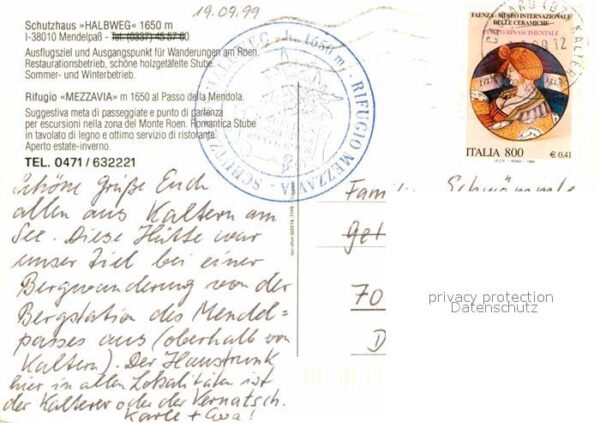 19.09.99
Schutzhaus »HALBWEG« 1650 m
I-38010 Mendelpaß - Tel. (0337) 45 57 60
Ausflugsziel und Ausgangspunkt für Wanderungen am Roen.
Restaurationsbetrieb, schöne holzgetäfelte Stube.
Sommer- und Winterbetrieb.
Rifugio «MEZZAVIA» m 1650 al Passo della Mendola.
Suggestiva meta di passeggiate e punto di partenza
per escursioni nella zona del Monte Roen. Romantica Stube
in tavolato di legno e ottimo servizio di ristorante.
Aperto estate-inverno.
TEL. 0471 / 632221
1650 m - RIFUGIO MEZZAVIA - SCHUTZHAUS HALBWEG
FAENZA - MUSEO INTERNAZIONALE
DELLE CERAMICHE
RINASCIMENTALE
ITALIA 800 € 0,41
Schöne Grüße Euch
allen aus Kaltern am
See. Diese Hütte war
unser Ziel bei einer
Bergwanderung von der
Bergstation des Mendel-
passes aus (oberhalb von
Kaltern). Der Haustrunk
hier in allen Lokalitäten ist
der Kalterer oder der Vernatsch.
Karle + Eva!
Famili
Get
70
D
privacy protection
Datenschutz